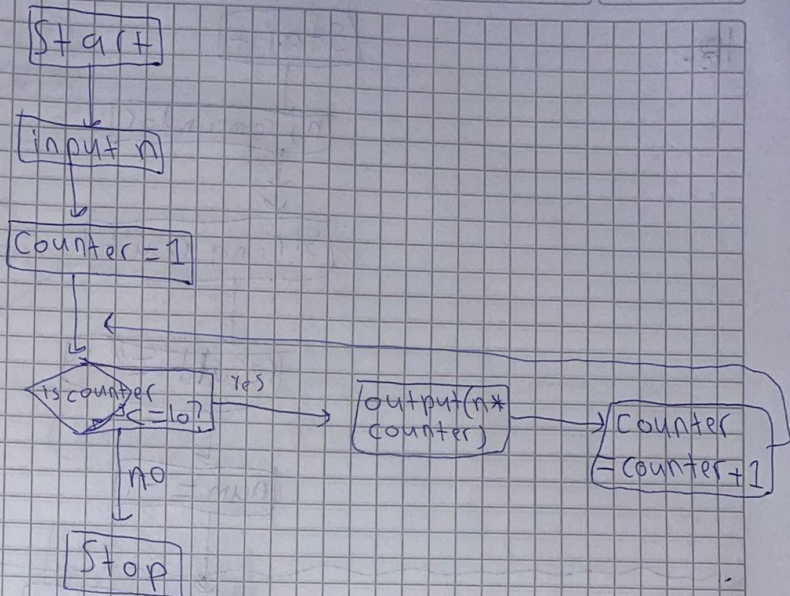 Start
input n
Counter = 1
is counter
<= 10?
Yes
output(n*
counter)
Counter
= counter + 1
no
Stop